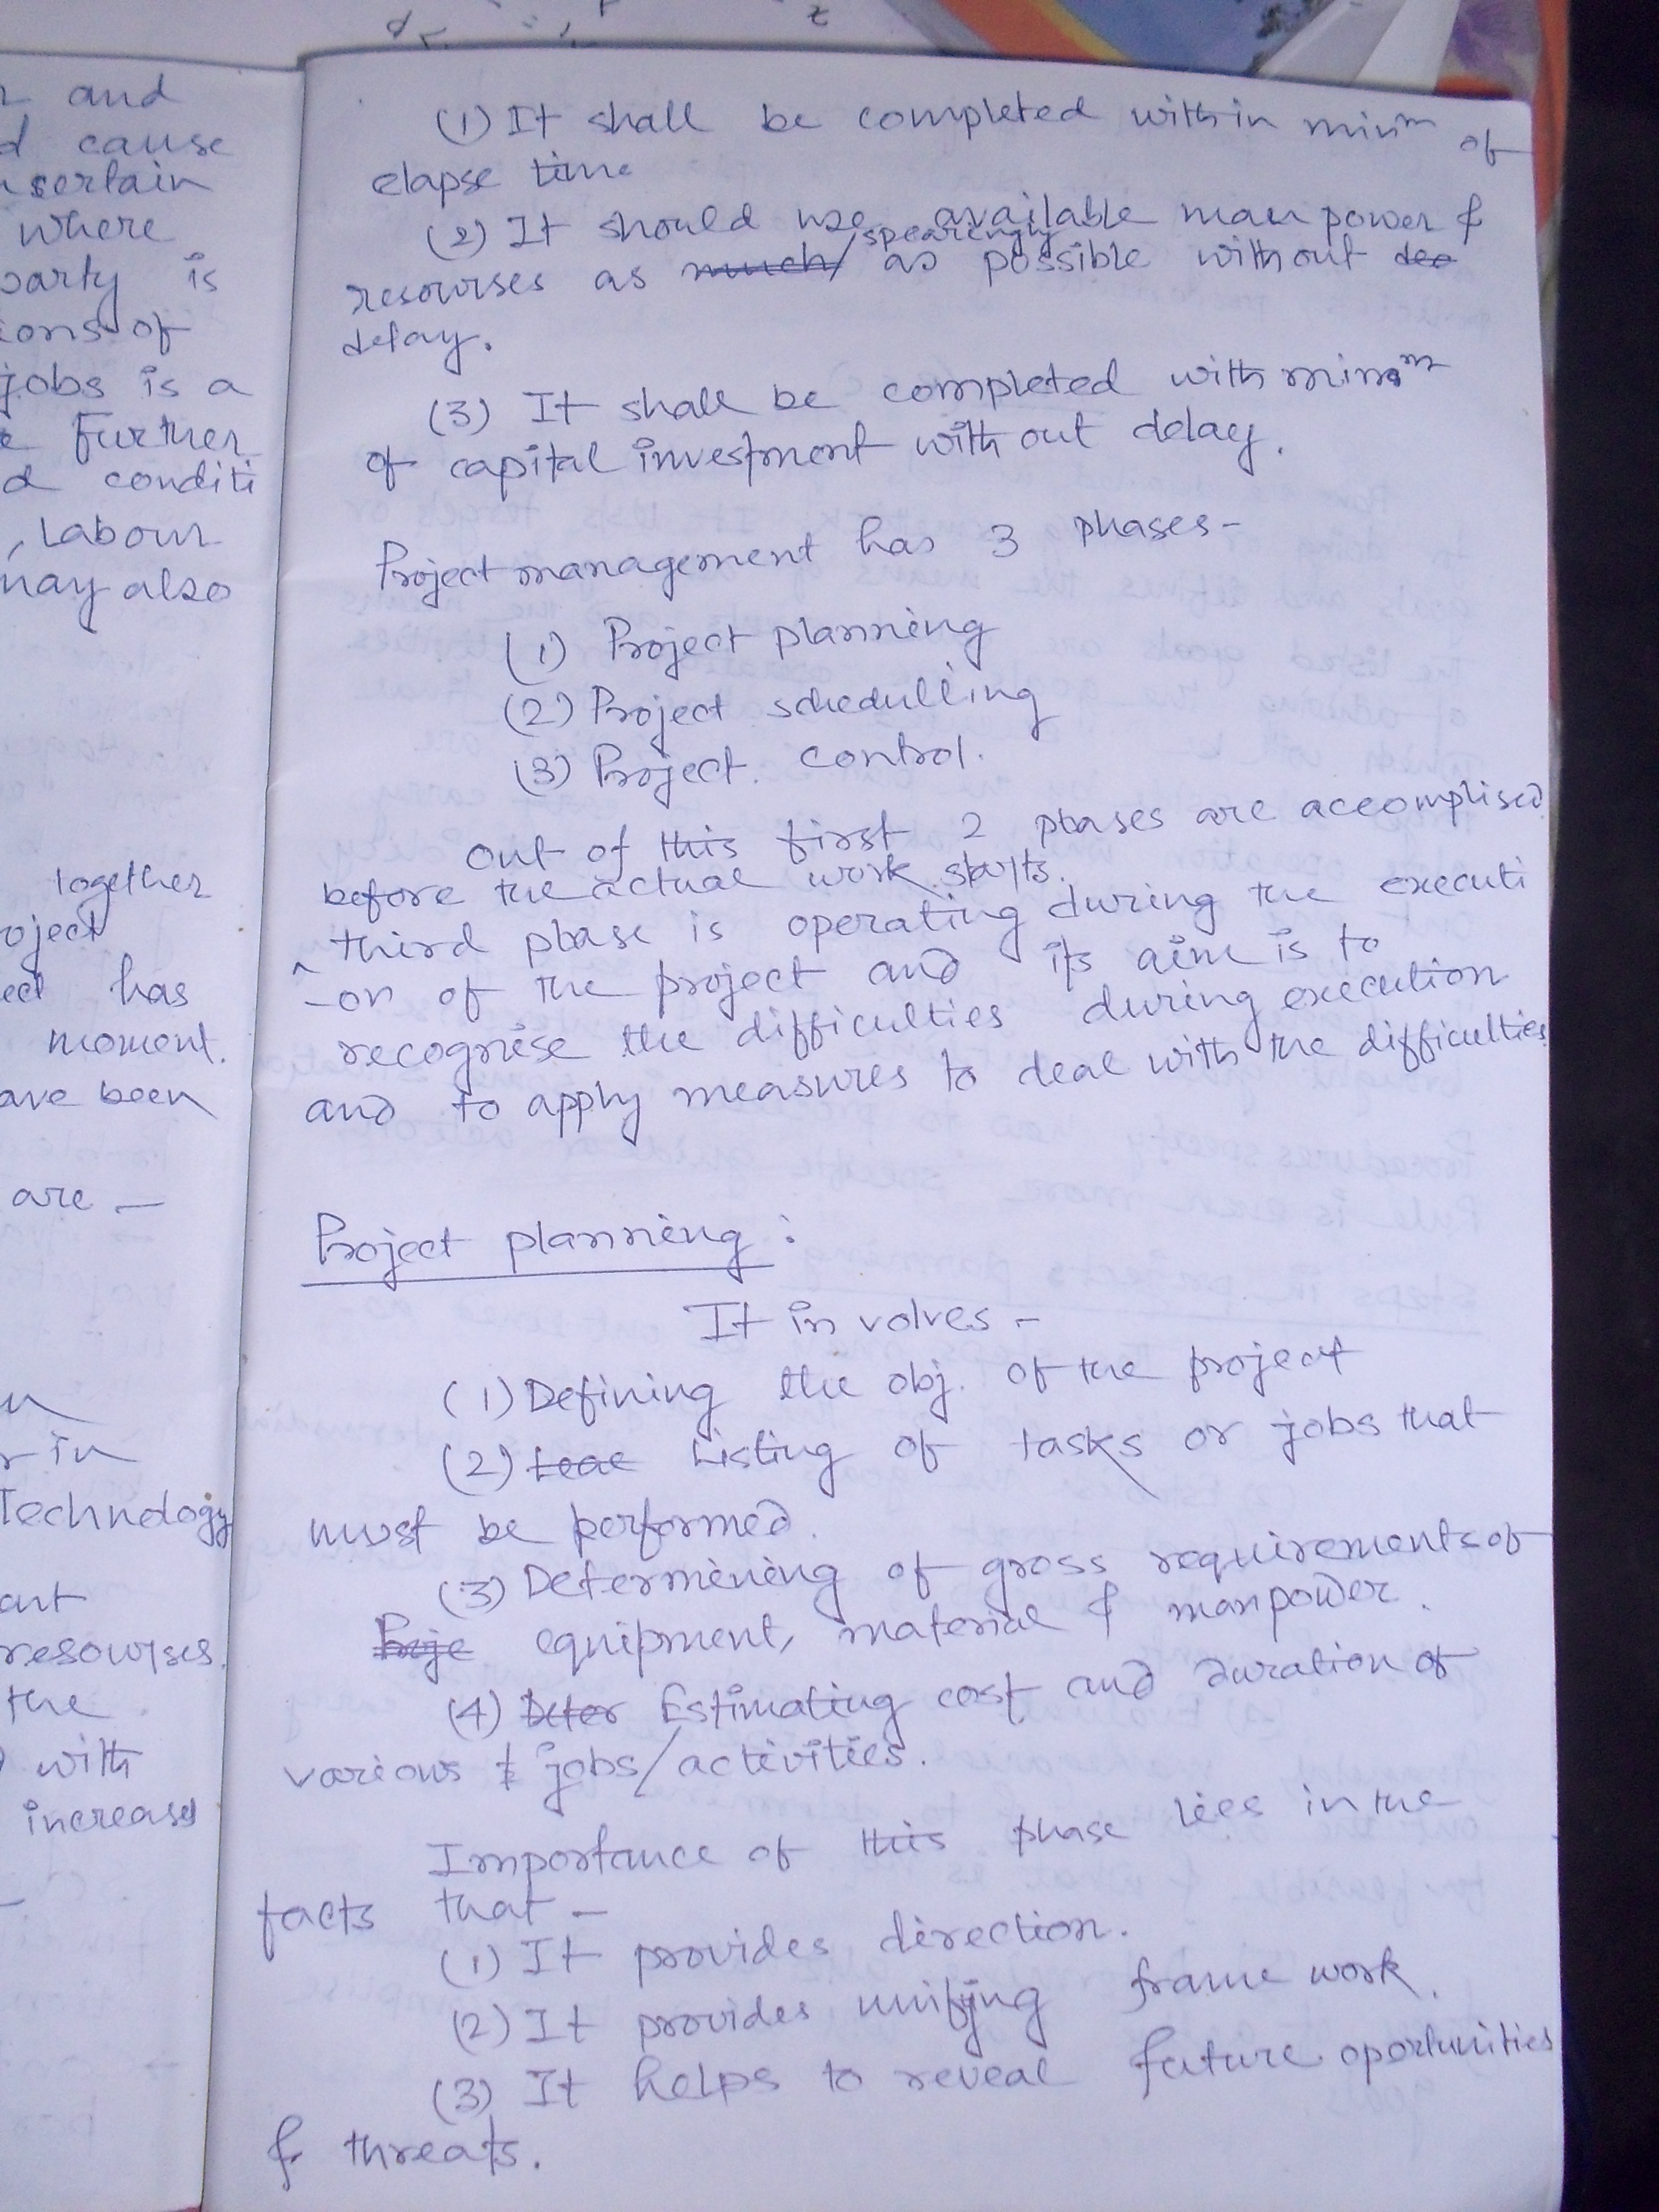 2 and
d cause
certain
where
party is
ions of
jobs is a
e Further
d conditi
, Labour
may also
together
oject
ect has
moment.
ave been
are —
r in
Technology
ant
resourses.
the
with
increases
(1) It shall be completed within minm of
elapse time
(2) It should use available man power &
resourses as much/ spearingly as possible without dea
delay.
(3) It shall be completed with minmm
of capital investment with out delay.
Project management has 3 phases -
(1) Project planning
(2) Project schedulling
(3) Project. control.
out of this first 2 phases are accomplised
before the actual work starts.
third phase is operating during the executi
-on of the project and its aim is to
recognise the difficulties during execution
and to apply measures to deal with the difficulties
Project planning :
It in volves -
(1) Defining the obj. of the project
(2) Leac Listing of tasks or jobs that
must be performed.
(3) Determining of gross requirements of
Proje equipment, material & manpower.
(4) Deter Estimating cost and duration of
various & jobs/activities.
Importance of this phase lies in the
facts that -
(1) It provides direction.
(2) It provides unifying frame work.
(3) It helps to reveal future oportunities
& threats.